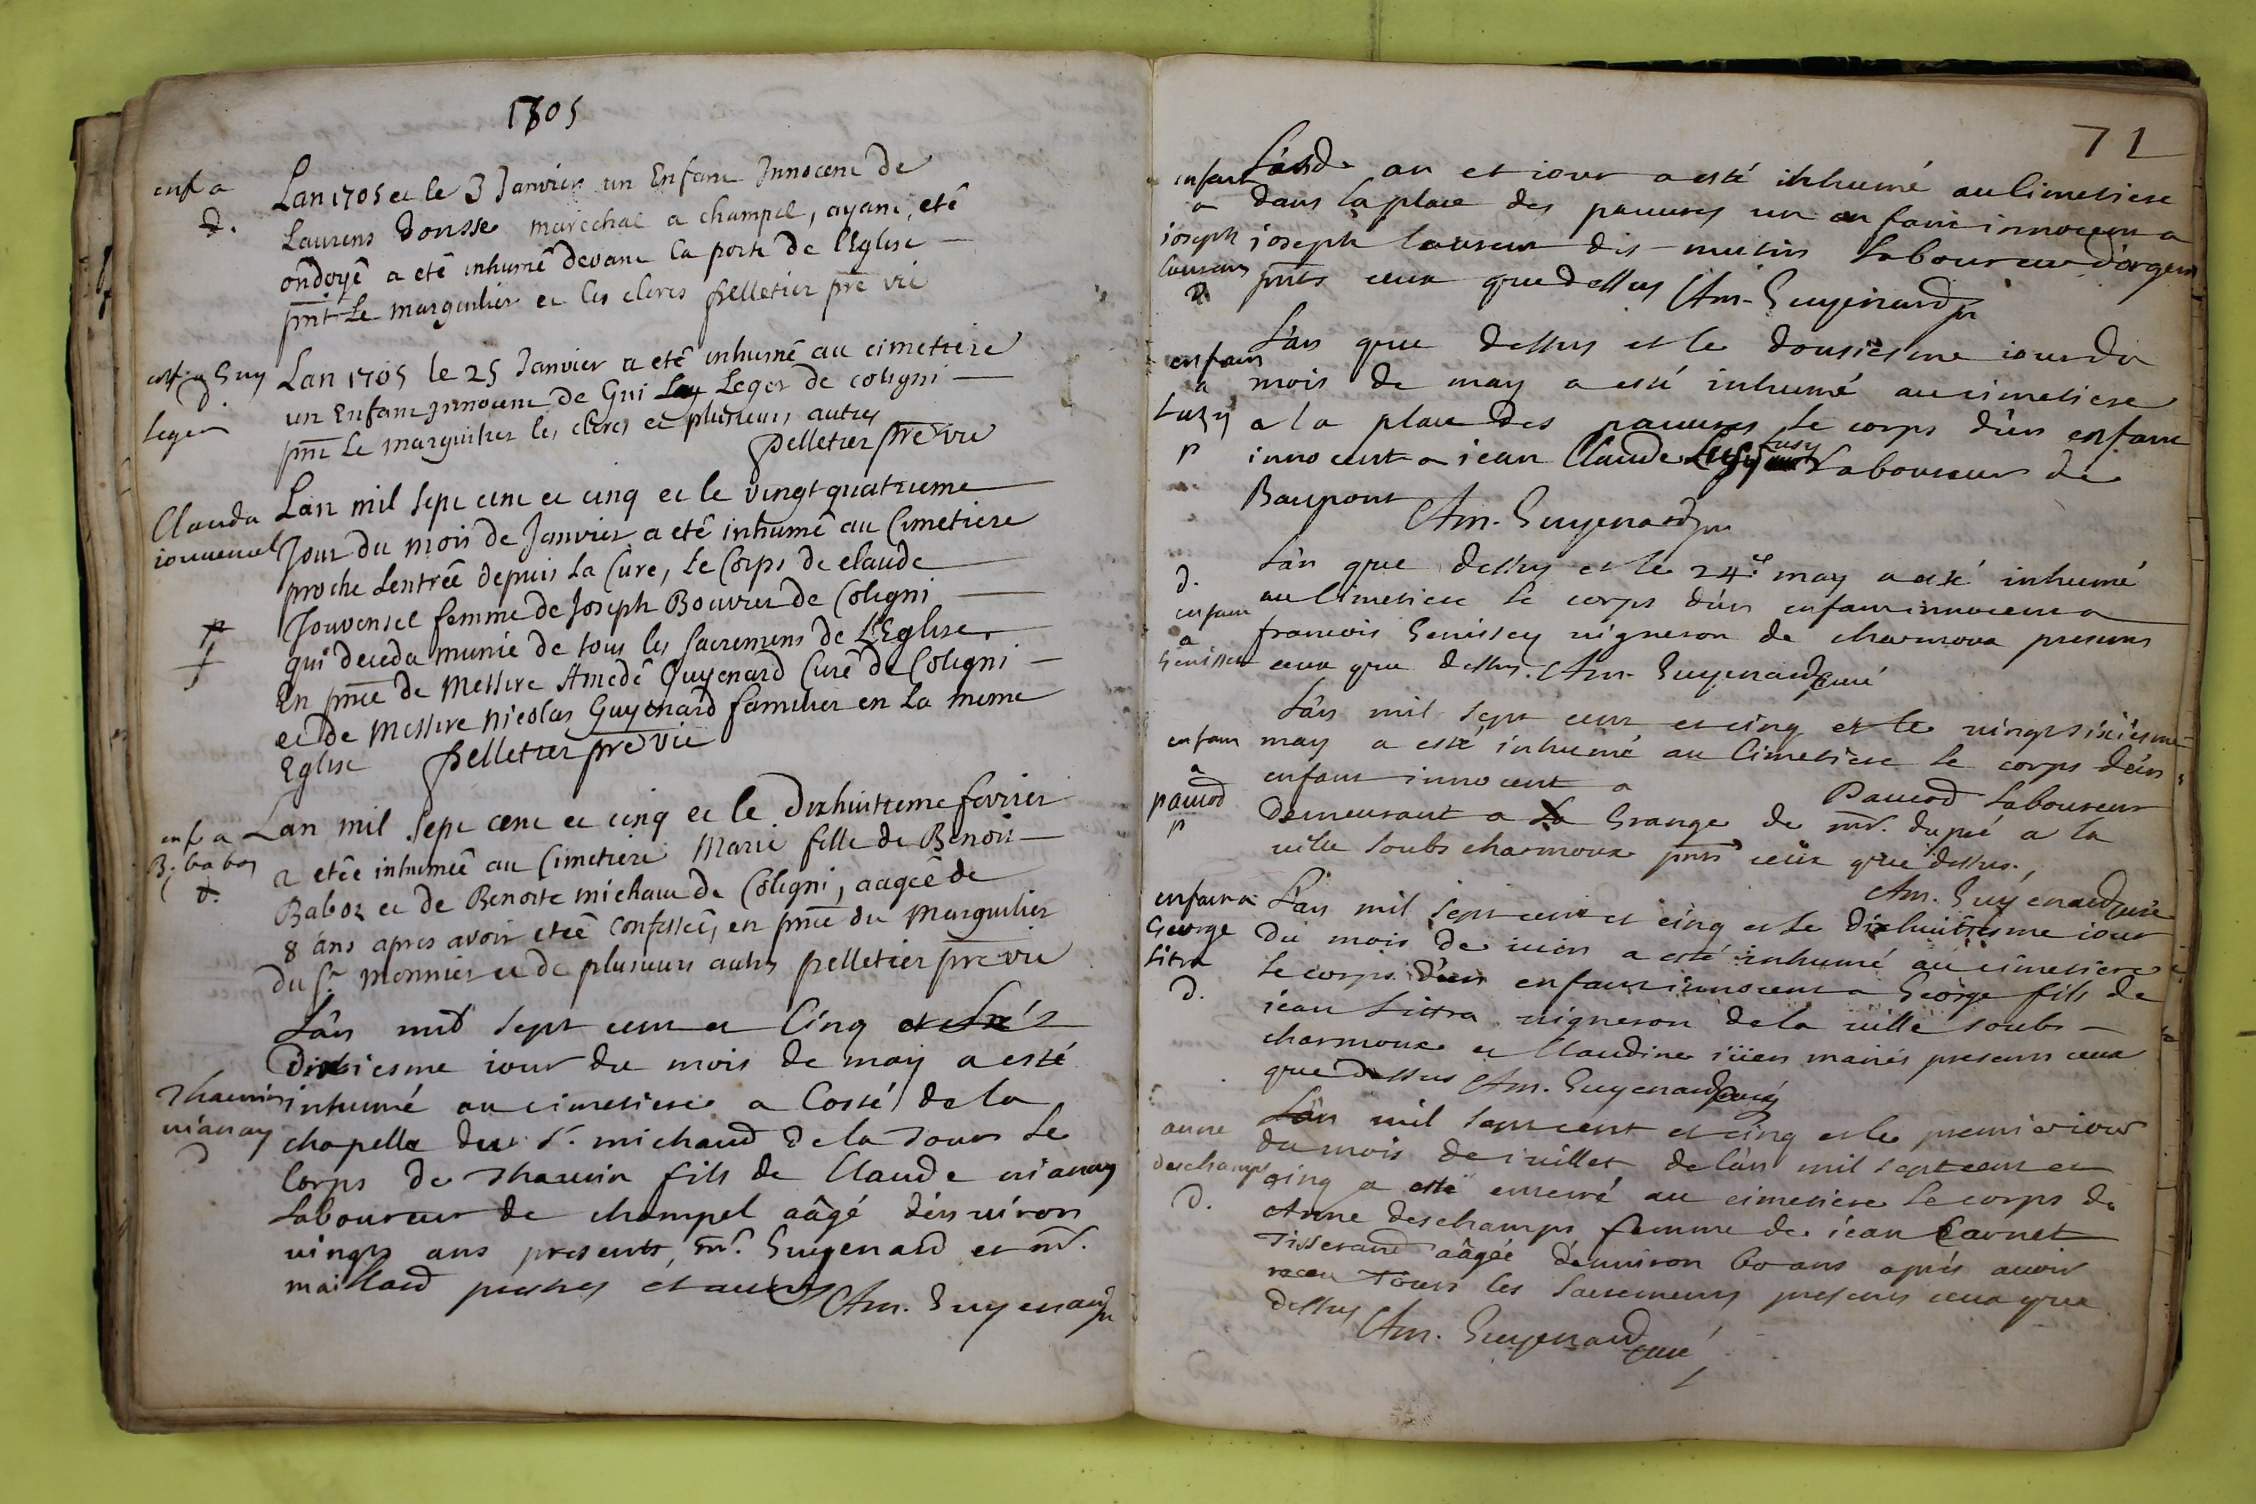 1705
enf a
d.
Lan 1705 et le 3 Janvier un Enfant Innocent de
Laurens Dousse marechal a champel, ayant, eté
ondoyé a eté inhumé devant la porte de l'Eglise
pnt Le marguilier et les clercs pelletier pre vic
enf a Guy
d.
Leger
Lan 1705 le 25 Janvier a eté inhumé au cimetiere
un Enfant Innocent de Gui Leger de coligni
pnt Le marguilier les clercs et plusieurs autres
pelletier pre vic
Clauda
iouvencel
Lan mil sept cent et cinq et le vingtquatrieme
Jour du mois de Janvier a eté inhumé au Cimetiere
proche Lentrée depuis la Cure, Le Corps de claude
Jouvencel femme de Joseph Bouvier de Coligni
qui deceda munie de tous les sacremens de L'Eglise
En pnce de Messire Amedé Guyenard Curé de Coligni
et de Messire Nicolas Guyenard familier en La meme
Eglise pelletier pre vic
enf a
B. babos
d.
Lan mil sept cent et cinq et le dixhuitieme fevrier
a etée inhumée au Cimetiere Marie fille de Benoit
Baboz et de Benoite michaut de Coligni, aagée de
8 ans apres avoir etée confessée, en pnce du Marguilier
du sr. Monnier et de plusieurs autres pelletier pre vic
Lan mil sept cent et Cinq et le
dixiesme iour du mois de may a esté
Thauvin
vianay
d
inhumé au cimetiere a Costé de la
chapelle du sr. michaud de la Tour le
Corps de Thauvin fils de Claude vianay
Laboureur de champel aâgé d'environ
vingts ans presents, mr. Guyenard et mr.
maillard prestres et autres Am. Guyenard
71
enfant
a
ioseph
Laurens
d
L'ansd. an et iour a esté inhumé au Cimetiere
dans la place des pauures un enfant innocent a
ioseph laurent dit mutin Laboureur d'argent
pnts ceux que dessus Am. Guyenard
enfant
a
Luzy
p
L'an que dessus et le dousiesme iour du
mois de may a esté inhumé au cimetiere
a la place des pauures le corps d'un enfant
innocent a iean Claude Lusy Laboureur de
Baupont Am. Guyenard
d.
enfant
a
Genissey
L'an que dessus et le 24e may a esté inhumé
au Cimetiere le corps d'un enfant innocent a
francois Genissey vigneron de charmoux presens
ceux que dessus. Am. Guyenard curé
enfant
a
paucod
p
L'an mil sept cent et cinq et le vingt sixiesme
may a esté inhumé au Cimetiere le corps d'un
enfant innocent a Paucod Laboureur
Demeurant a la Grange de mr. dupré a la
ville soubs charmoux pnts ceux que dessus.
Am. Guyenard curé
enfant a
George
Sitra
d.
L'an mil sept cent et cinq et le dixhuitiesme iour
du mois de iuin a esté inhumé au cimetiere
le corps d'un enfant innocent a George fils de
iean Sittra vigneron de la ville soubs
charmoux et Claudine mariés presens ceux
que dessus Am. Guyenard curé
anne
deschamps
d.
L'an mil sept cent et cinq et le premier iour
du mois de iuillet de l'an mil sept cent et
cinq a esté enterré au cimetiere le corps de
Anne deschamps femme de iean Carnet
Tisserand aâgée d'environ 60 ans aprés auoir
receu tous les sacremens presens ceux que
dessus Am. Guyenard curé